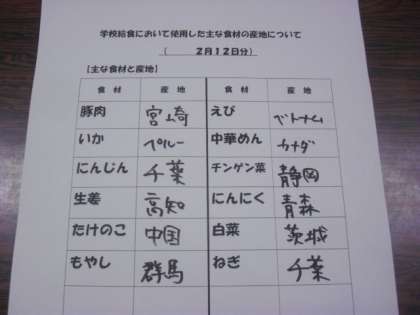 学校給食において使用した主な食材の産地について
（　２月１２日分）
【主な食材と産地】
食材 産地 食材 産地
豚肉 宮崎 えび ベトナム
いか ペルー 中華めん カナダ
にんじん 千葉 チンゲン菜 静岡
生姜 高知 にんにく 青森
たけのこ 中国 白菜 茨城
もやし 群馬 ねぎ 千葉